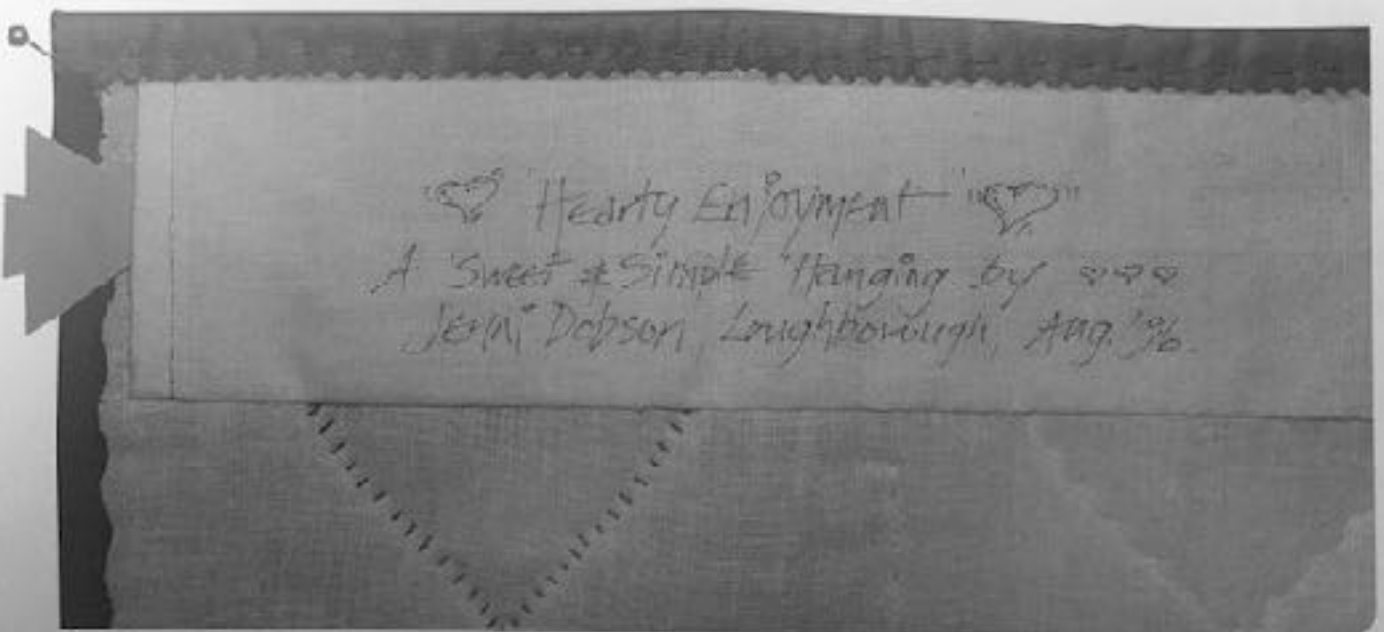 "Hearty Enjoyment"
A 'Sweet & Simple' Hanging by
Jenni Dobson, Loughborough, Aug. '96.